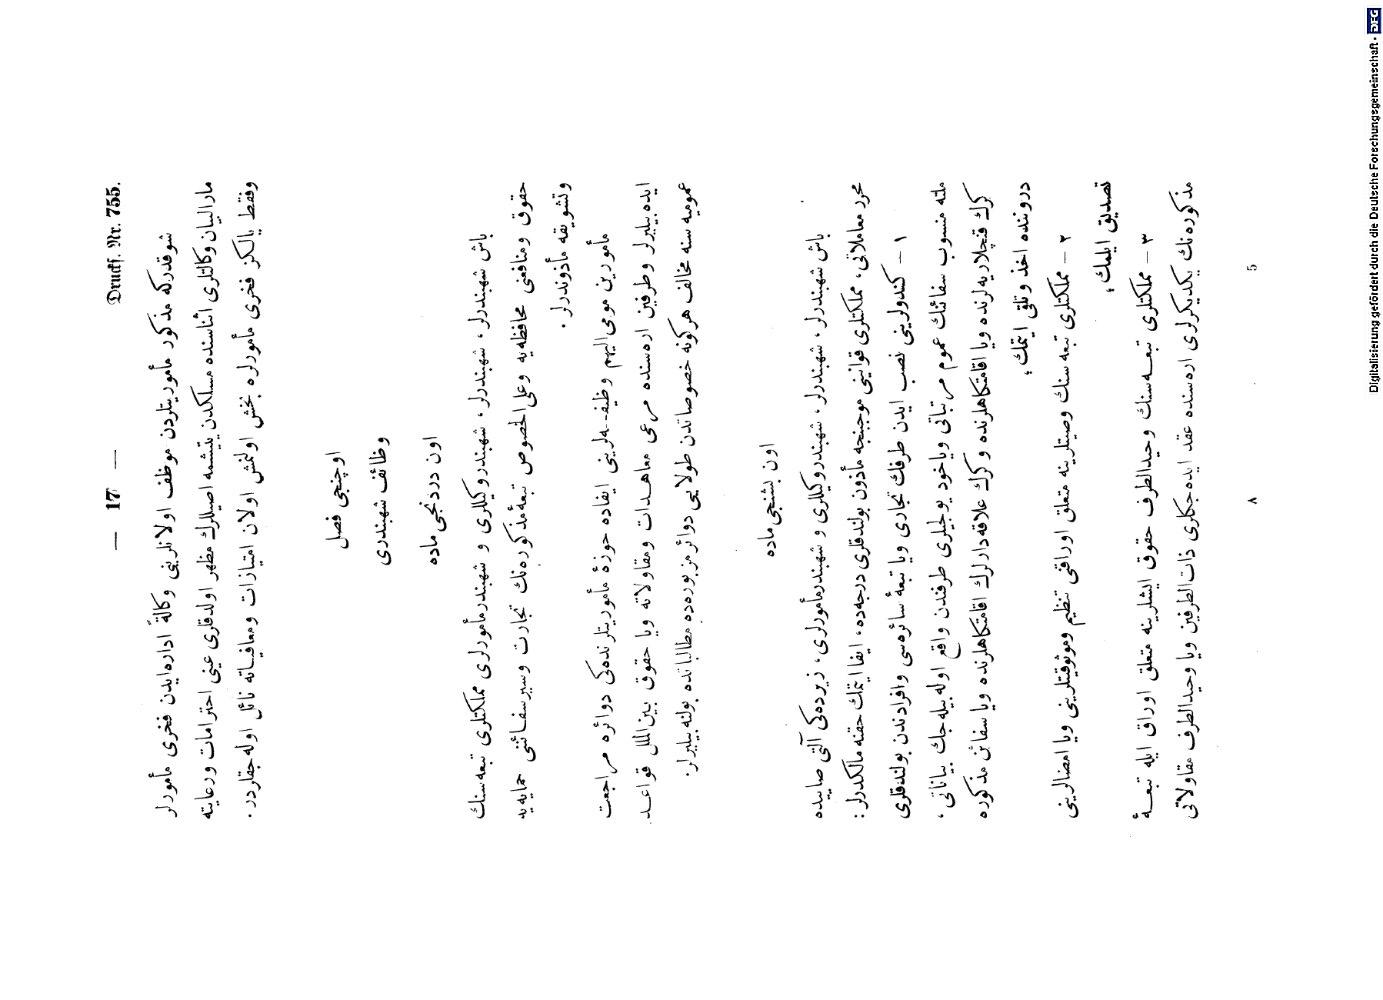 — 17 —
Druckf. Nr. 755.
شوقدركه مذكور مأموريتلردن موظف اولانلرينى وكالةً اداره‌ايدن فخرى مأمورلر
مارالبيان وكالتلرى اثناسنده مسلكدن يتيشمه اصيللرك مظهر اولدقلرى عينى احترامات ورعايته
وفقط يالكز فخرى مأمورلره بخش اولنمش اولان امتيازات ومعافياته نائل اوله‌جقلردر.
اوچنجى فصل
وظائف شهبندرى
اون دردنجى ماده
باش شهبندرلر، شهبندرلر، شهبندر وكيللرى و شهبندر مأمورلرى مملكتلرى تبعه‌سنك
حقوق ومنافعنى محافظه‌يه وعلى‌الخصوص تبعۀ مذكوره‌نك تجارت وسير سفائننى حمايه‌يه
وتشويقه مأذوندرلر.
مأمورين مومى‌اليهم وظيفه‌لرينى ايفاده حوزۀ مأموريتلرنده‌كى دوائره مراجعت
ايده‌بيليرلر وطرفين اره‌سنده مرعى معاهدات ومقاولاته ويا حقوق بين‌الملل قواعد
عموميه‌سنه مخالف هركونه خصوصاتدن طولايى دوائر مزبوره‌ده مطالباتده بولنه‌بيليرلر.
اون بشنجى ماده
باش شهبندرلر، شهبندرلر، شهبندر وكيللرى و شهبندر مأمورلرى، زيرده‌كى آلتى صاييده
محرر معاملاتى، مملكتلرى قوانينى موجبنجه مأذون بولندقلرى درجه‌ده، ايفا ايتمك حقنه مالكدرلر:
١ – كندولرينى نصب ايدن طرفك تجارى ويا تبعۀ سائره‌سى وافرادندن بولندقلرى
ملته منسوب سفائنك عموم مرتباتى وياخود يولجيلرى طرفندن واقع اوله‌بيله‌جك بياناتى،
كرك قنچلاريه‌لرنده ويا اقامتكاهلرنده و كرك علاقه‌دارلرك اقامتكاهلرنده ويا سفائن مذكوره
دروننده اخذ وتلقى ايتمك؛
٢ – مملكتلرى تبعه‌سنك وصيتلرينه متعلق اوراقى تنظيم وموثوقيتلرينى ويا امضالرينى
تصديق ايلمك؛
٣ – مملكتلرى تبعه‌سنك وحيدالطرف حقوق ايشلرينه متعلق اوراق ايله تبعۀ
مذكوره‌نك يكديكرلرى اره‌سنده عقد ايده‌جكلرى ذات‌الطرفين ويا وحيدالطرف مقاولاتى
٨
5
Digitalisierung gefördert durch die Deutsche Forschungsgemeinschaft - DFG